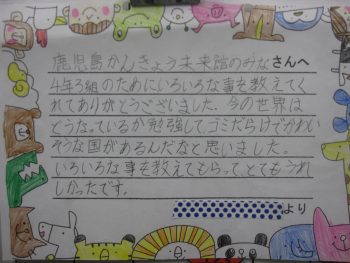 鹿児島かんきょう未来館のみなさんへ
4年3組のためにいろいろな事を教えてく
れてありがとうございました。今の世界は
どうなっているか勉強して、ゴミだらけでかわい
そうな国があるんだなと思いました。
いろいろな事を教えてもらって、とてもうれ
しかったです。
より